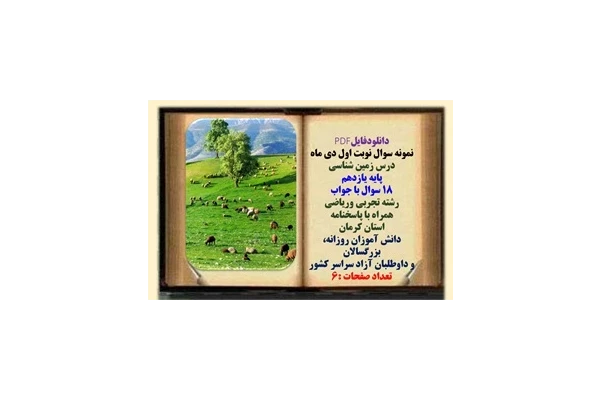 دانلودفایلPDF
نمونه سوال نوبت اول دی ماه
درس زمین شناسی
پایه یازدهم
۱۸ سوال با جواب
رشته تجربی وریاضی
همراه با پاسخنامه
استان کرمان
دانش آموزان روزانه،
بزرگسالان
و داوطلبان آزاد سراسر کشور
تعداد صفحات :۶